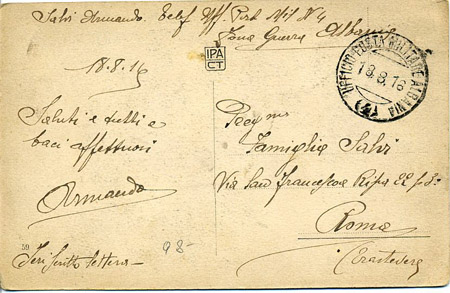 Salvi Armando. Telef. Uff. Post. Mil. N. 4
Zona Guerra Albania
IPA
CT
UFFICIO POSTA MILITARE ALBANIA
18.8.16
(4)
18.8.16
Saluti a tutti e
baci affettuosi
Armando
Famiglia Salvi
Via San Francesco a Ripa 22 p. 3.
Roma
(Trastevere
59
Ieri scritto lettera
98-